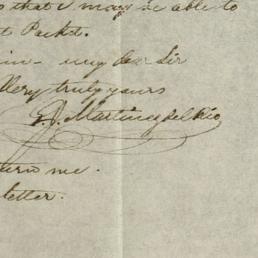 so that I may be able to
t Packet.
in - my dear Sir
Very truly yours
J. Martinez del Rio
turn me.
letter.